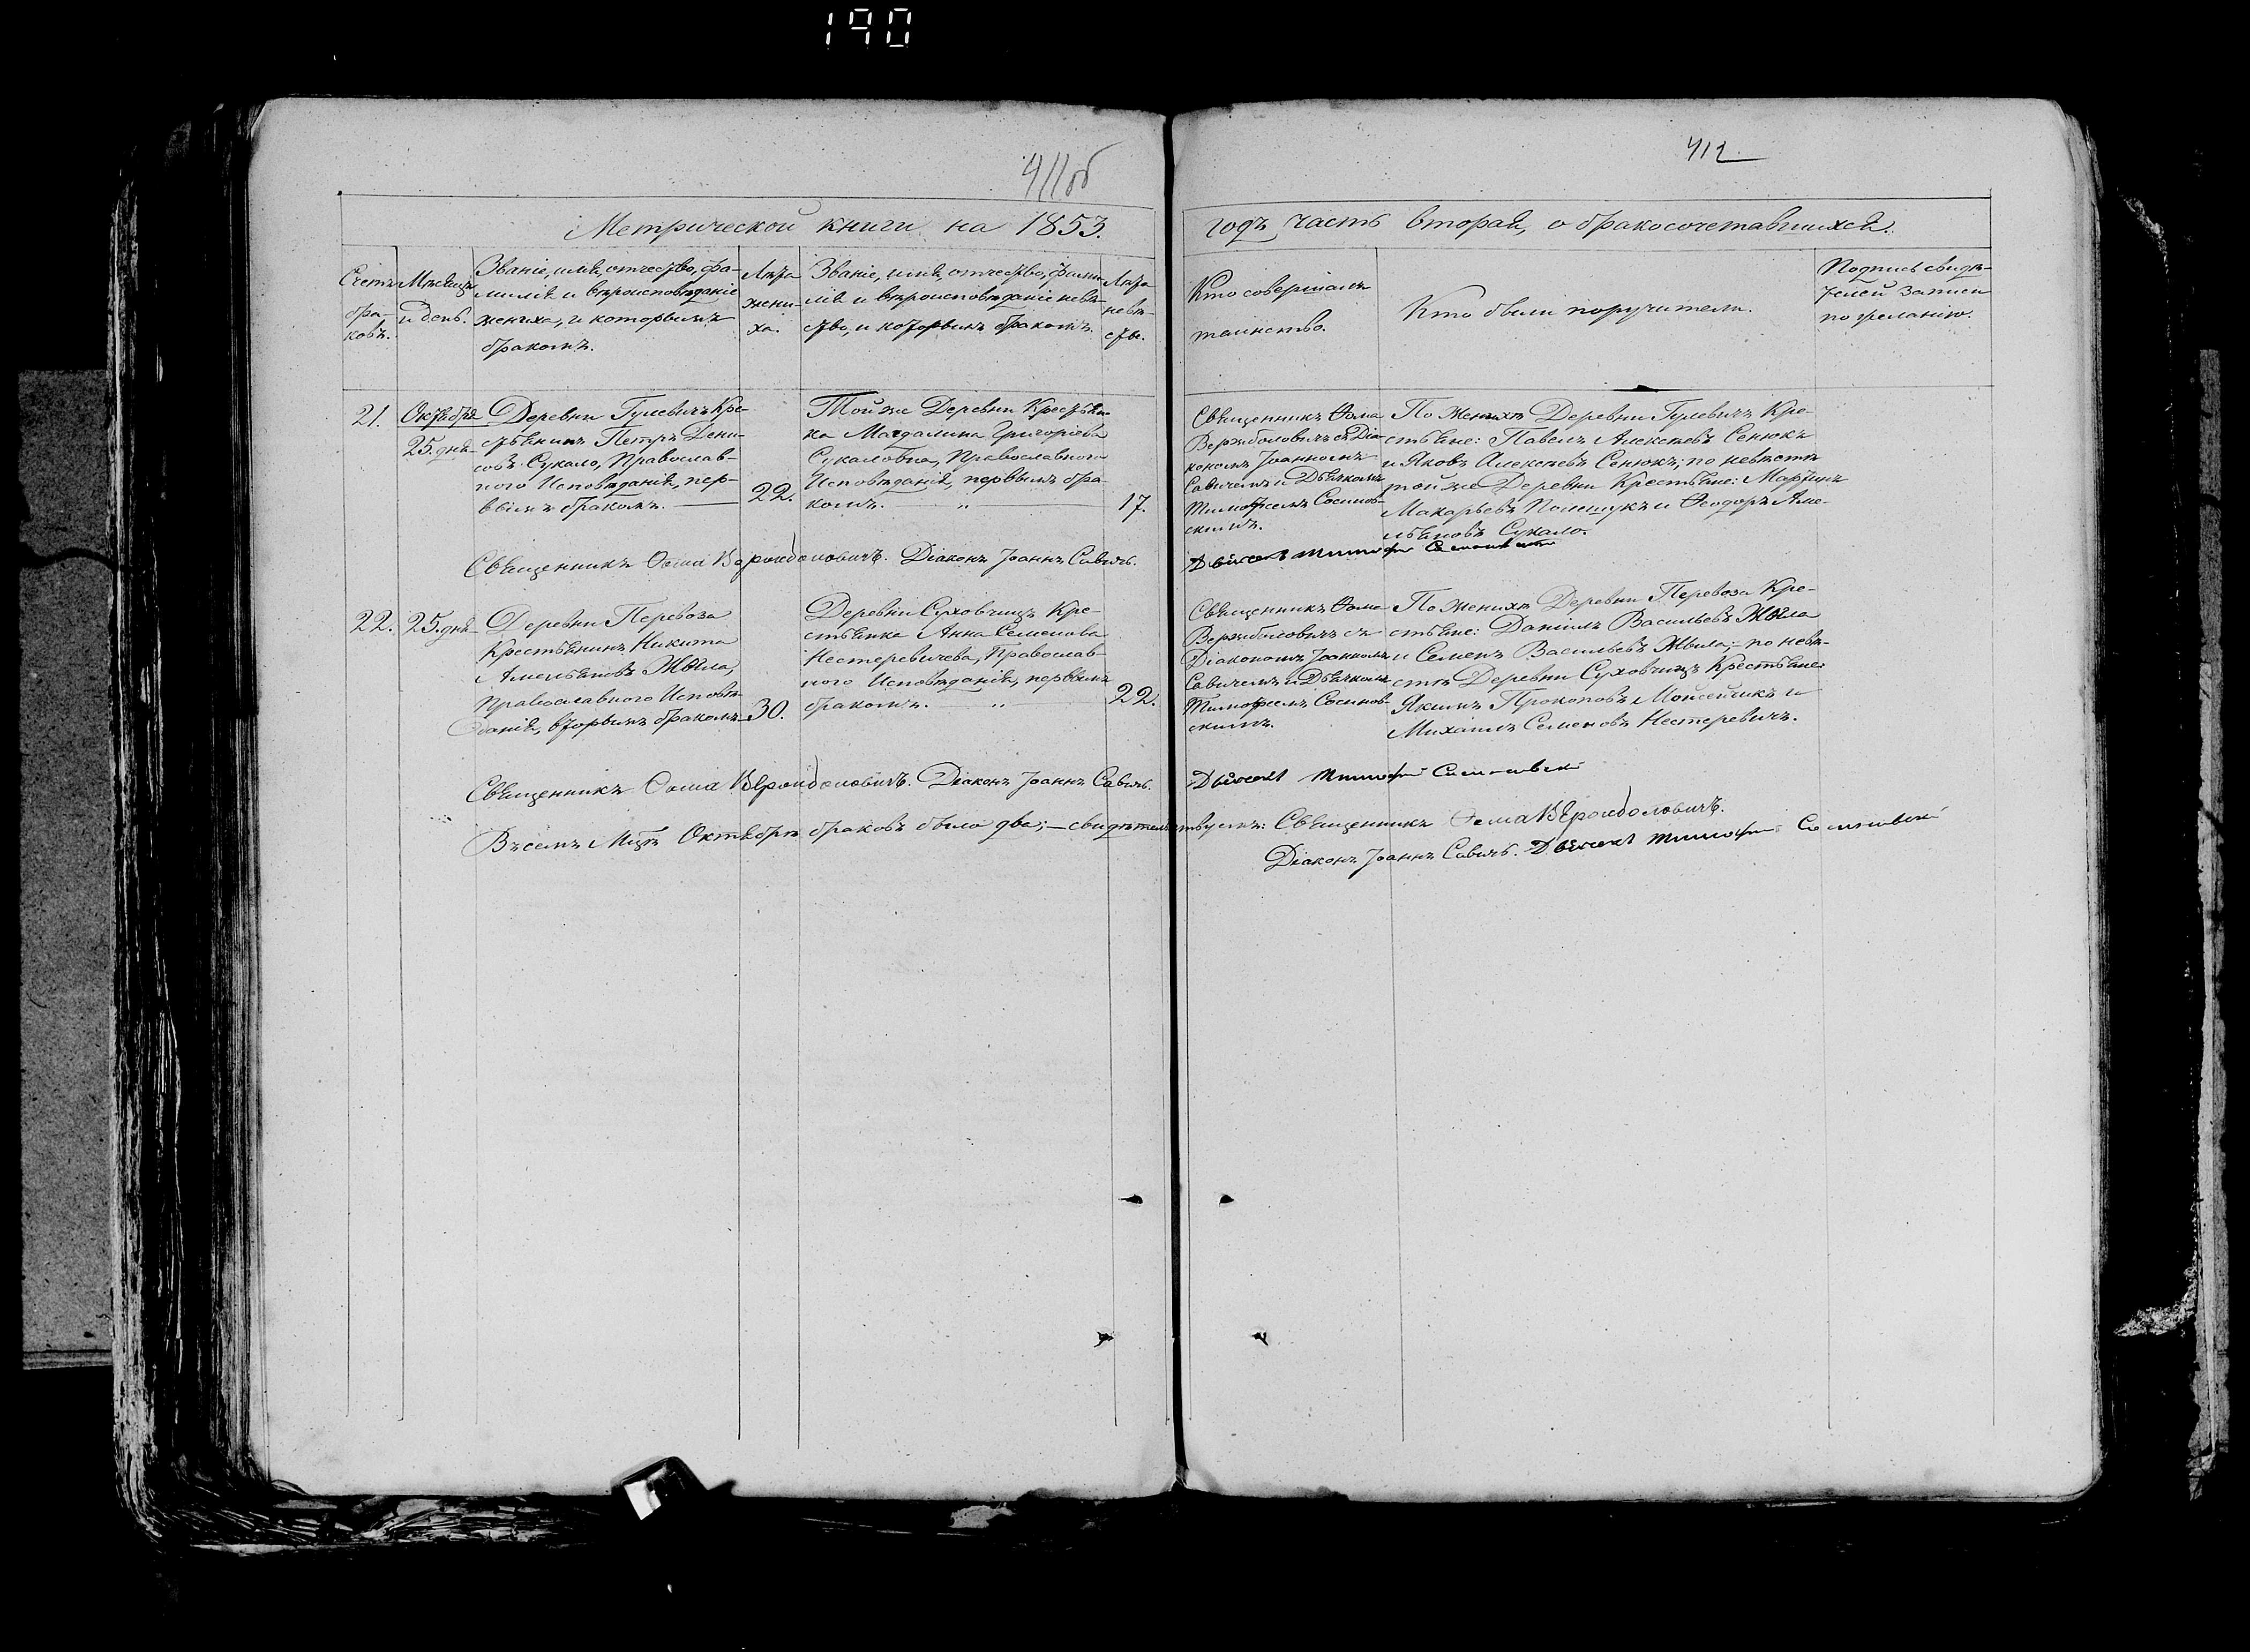 190
411об
412
Метрической книги на 1853.
годъ часть вторая, о бракосочетавшихся.
Счетъ бра-
ковъ.
Мѣсяцъ
и день.
Званіе, имя, отчество, фа-
милія и вѣроисповѣданіе
жениха, и которымъ
бракомъ.
Лѣта
жени-
ха.
Званіе, имя, отчество, фами-
лія и вѣроисповѣданіе невѣ-
сты, и которымъ бракомъ.
Лѣта
невѣ-
сты.
Кто совершалъ
таинство.
Кто были поручители.
Подпись свидѣ-
телей записи
по желанію.
21.
Октября
25. дня
Деревни Гулевичъ Кре-
стьянинъ Петръ Дени-
совъ Сукало, Православ-
наго Исповѣданія, пер-
вымъ бракомъ.
22.
Той же Деревни Крестьян-
ка Магдалина Григоріева
Сукаловна, Православнаго
Исповѣданія, первымъ бра-
комъ. „
17.
Священникъ Ѳома
Вержболовичъ съ Діа-
кономъ Іоанномъ
Савичемъ и Дьячкомъ
Тимофеемъ Сосинов-
скимъ.
По Женихѣ Деревни Гулевичъ Кре-
стьяне: Павелъ Алексѣевъ Сенюкъ
и Яковъ Алексѣевъ Сенюкъ; по невѣстѣ
той же Деревни Крестьяне: Мартинъ
Макарьевъ Полещукъ и Ѳеодоръ Аме-
льяновъ Сукало.
Священникъ Ѳома Вержболовичъ. Діаконъ Іоаннъ Савичъ.
Дьячекъ Тимофей Сосиновскій
22.
25. дня
Деревни Перевоза
Крестьянинъ Никита
Амельяновъ Жвила,
Православнаго Исповѣ-
данія, вторымъ бракомъ
30.
Деревни Суховчицъ Кре-
стьянка Анна Семенова
Нестеревичева, Православ-
наго Исповѣданія, первымъ
бракомъ. „
22.
Священникъ Ѳома
Вержболовичъ съ
Діакономъ Іоанномъ
Савичемъ и Дьячкомъ
Тимофеемъ Сосинов-
скимъ.
По Женихѣ Деревни Перевоза Кре-
стьяне: Даніилъ Васильевъ Жвила
и Семенъ Васильевъ Жвила; по невѣ-
стѣ Деревни Суховчицъ Крестьяне:
Якимъ Прокоповъ Мойсейчикъ и
Михаилъ Семеновъ Нестеревичъ.
Священникъ Ѳома Вержболовичъ. Діаконъ Іоаннъ Савичъ.
Дьячекъ Тимофей Сосиновскій
Въ семъ Мцѣ Октябрѣ браковъ было два; – свидѣтельствуемъ: Священникъ Ѳома Вержболовичъ.
Діаконъ Іоаннъ Савичъ. Дьячекъ Тимофей Сосиновскій